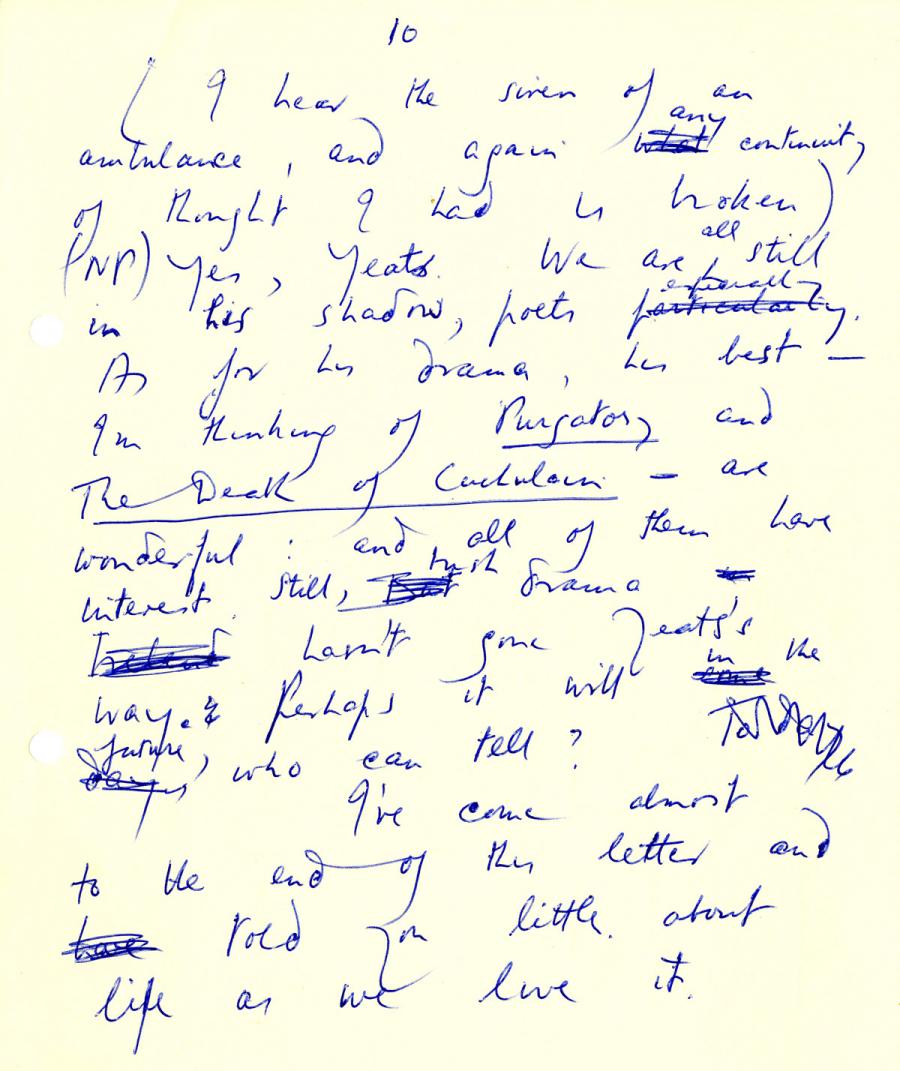 10
( I hear the siren of an
ambulance, and again ~~what~~ any continuity
of thought I had is broken)
(NP) Yes, Yeats. We are all still
in his shadow, poets ~~particularly~~ especially.
As for his drama, his best –
I'm thinking of Purgatory and
The Death of Cuchulain – are
wonderful : and all of them have
interest. Still, ~~But~~ Irish drama
hasn't gone Yeats's
way. & Perhaps it will ~~come~~ in the
future, ~~days~~, who can tell?
I've come almost
to the end of this letter and
~~have~~ told you little about
life as we live it.